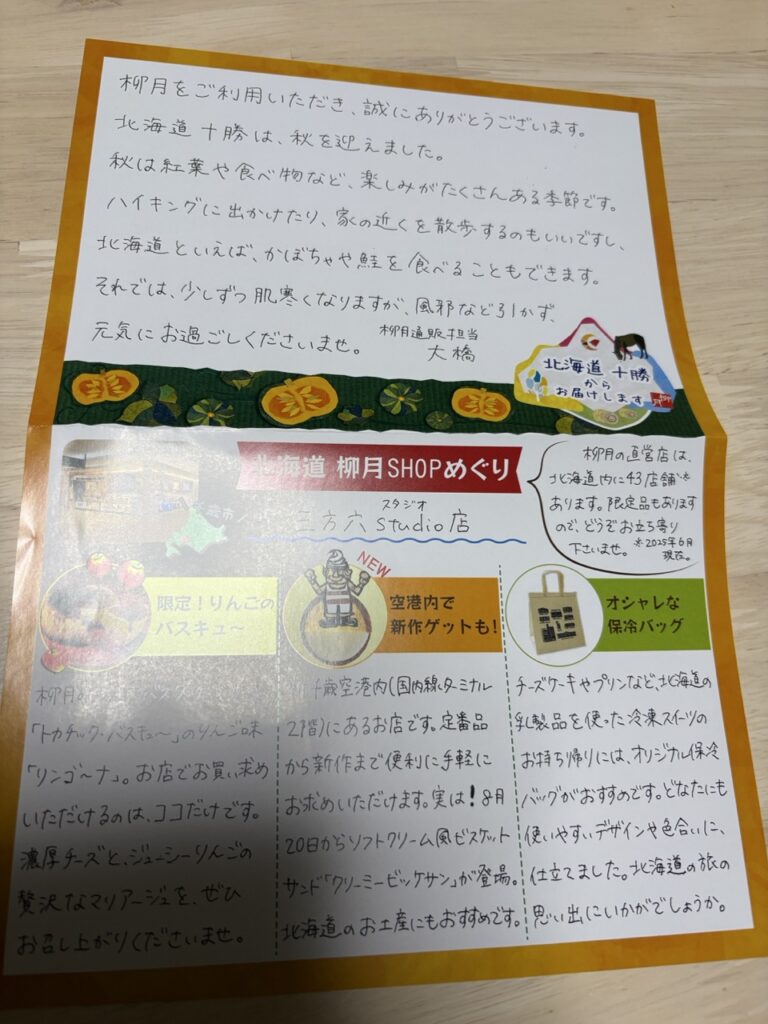 柳月をご利用いただき、誠にありがとうございます。
北海道 十勝は、秋を迎えました。
秋は紅葉や食べ物など、楽しみがたくさんある季節です。
ハイキングに出かけたり、家の近くを散歩するのもいいですし、
北海道といえば、かぼちゃや鮭を食べることもできます。
それでは、少しずつ肌寒くなりますが、風邪など引かず、
元気にお過ごしくださいませ。
柳月通販担当
大橋
北海道 十勝
から
お届けします
柳月
北海道 柳月SHOPめぐり
千歳市
スタジオ
三方六 studio店
柳月の直営店は、
北海道内に43店舗※
あります。限定品もあります
ので、どうぞお立ち寄り
下さいませ。
※2025年6月
現在。
限定!りんごの
バスキュ〜
柳月
「トカチック・バスキュ〜」のりんご味
「リンゴ〜ナ」。お店でお買い求め
いただけるのは、ココだけです。
濃厚チーズと、ジューシーりんごの
贅沢なマリアージュを、ぜひ
お召し上がりくださいませ。
NEW
空港内で
新作ゲットも!
新千歳空港内(国内線ターミナル
2階)にあるお店です。定番品
から新作まで便利に手軽に
お求めいただけます。実は!8月
20日からソフトクリーム風ビスケット
サンド「クリーミービッケサン」が登場。
北海道のお土産にもおすすめです。
オシャレな
保冷バッグ
チーズケーキやプリンなど、北海道の
乳製品を使った冷凍スイーツの
お持ち帰りには、オリジナル保冷
バッグがおすすめです。どなたにも
使いやすいデザインや色合いに、
仕立てました。北海道の旅の
思い出にいかがでしょうか。